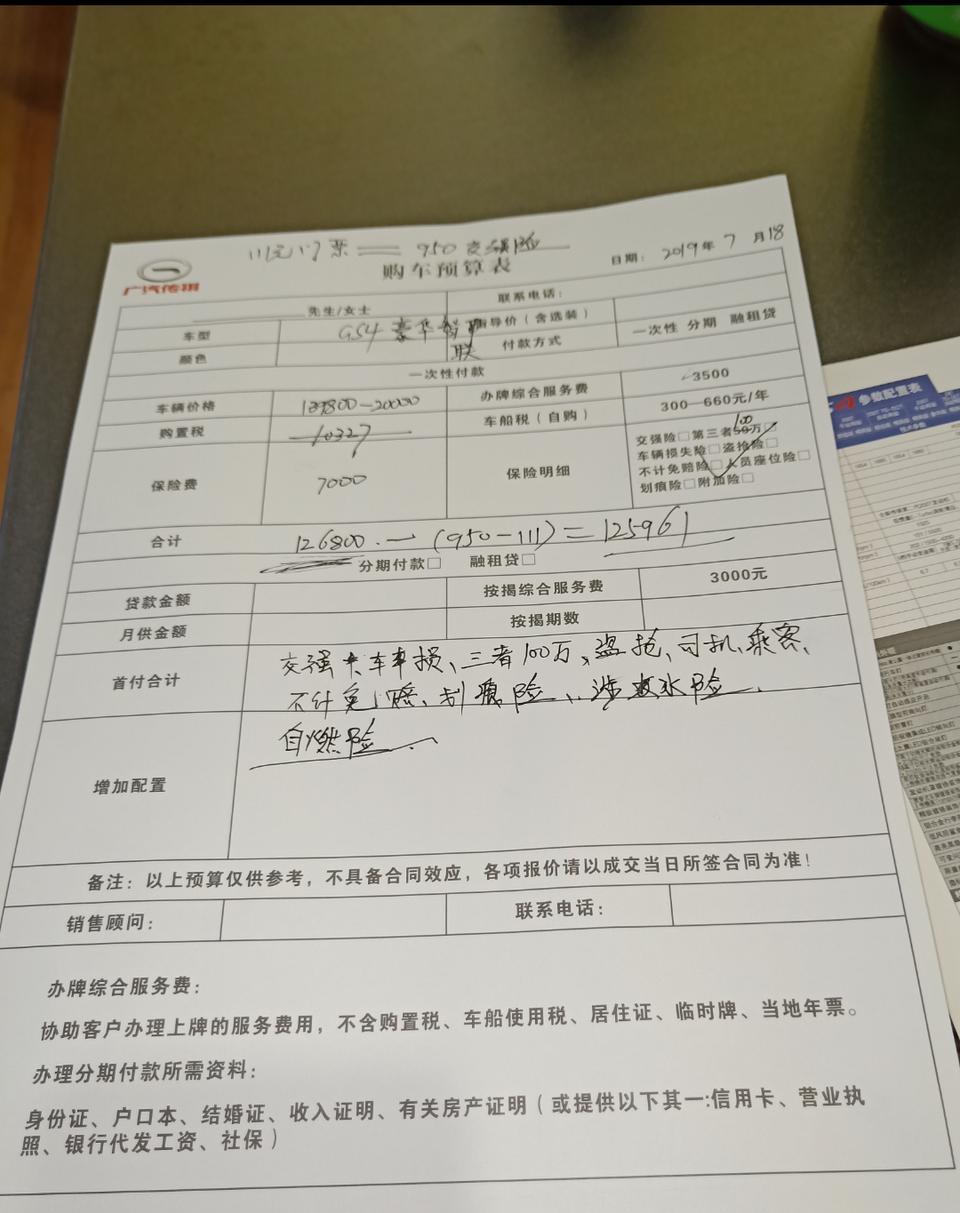 111元门票 = 950交强险
广汽传祺
购车预算表
日期：2019年7月18
先生/女士
联系电话：
车型
GS4豪华智联
指导价（含选装）
一次性 分期 融租贷
颜色
付款方式
一次性付款
车辆价格
139800-20000
办牌综合服务费
3500
购置税
10327
车船税（自购）
300-660元/年
保险费
7000
保险明细
100
交强险□第三者50万□
车辆损失险□盗抢险□
不计免赔险□人员座位险□
划痕险□附加险□
合计
126800.—(950-111)=125961
分期付款□ 融租贷□
贷款金额
按揭综合服务费
3000元
月供金额
按揭期数
首付合计
交强 车损、三者100万、盗抢、司机、乘客、
不计免赔、划痕险、涉水险、
自燃险
增加配置
备注：以上预算仅供参考，不具备合同效应，各项报价请以成交当日所签合同为准！
销售顾问：
联系电话：
办牌综合服务费：
协助客户办理上牌的服务费用，不含购置税、车船使用税、居住证、临时牌、当地年票。
办理分期付款所需资料：
身份证、户口本、结婚证、收入证明、有关房产证明（或提供以下其一:信用卡、营业执
照、银行代发工资、社保）
参数配置表